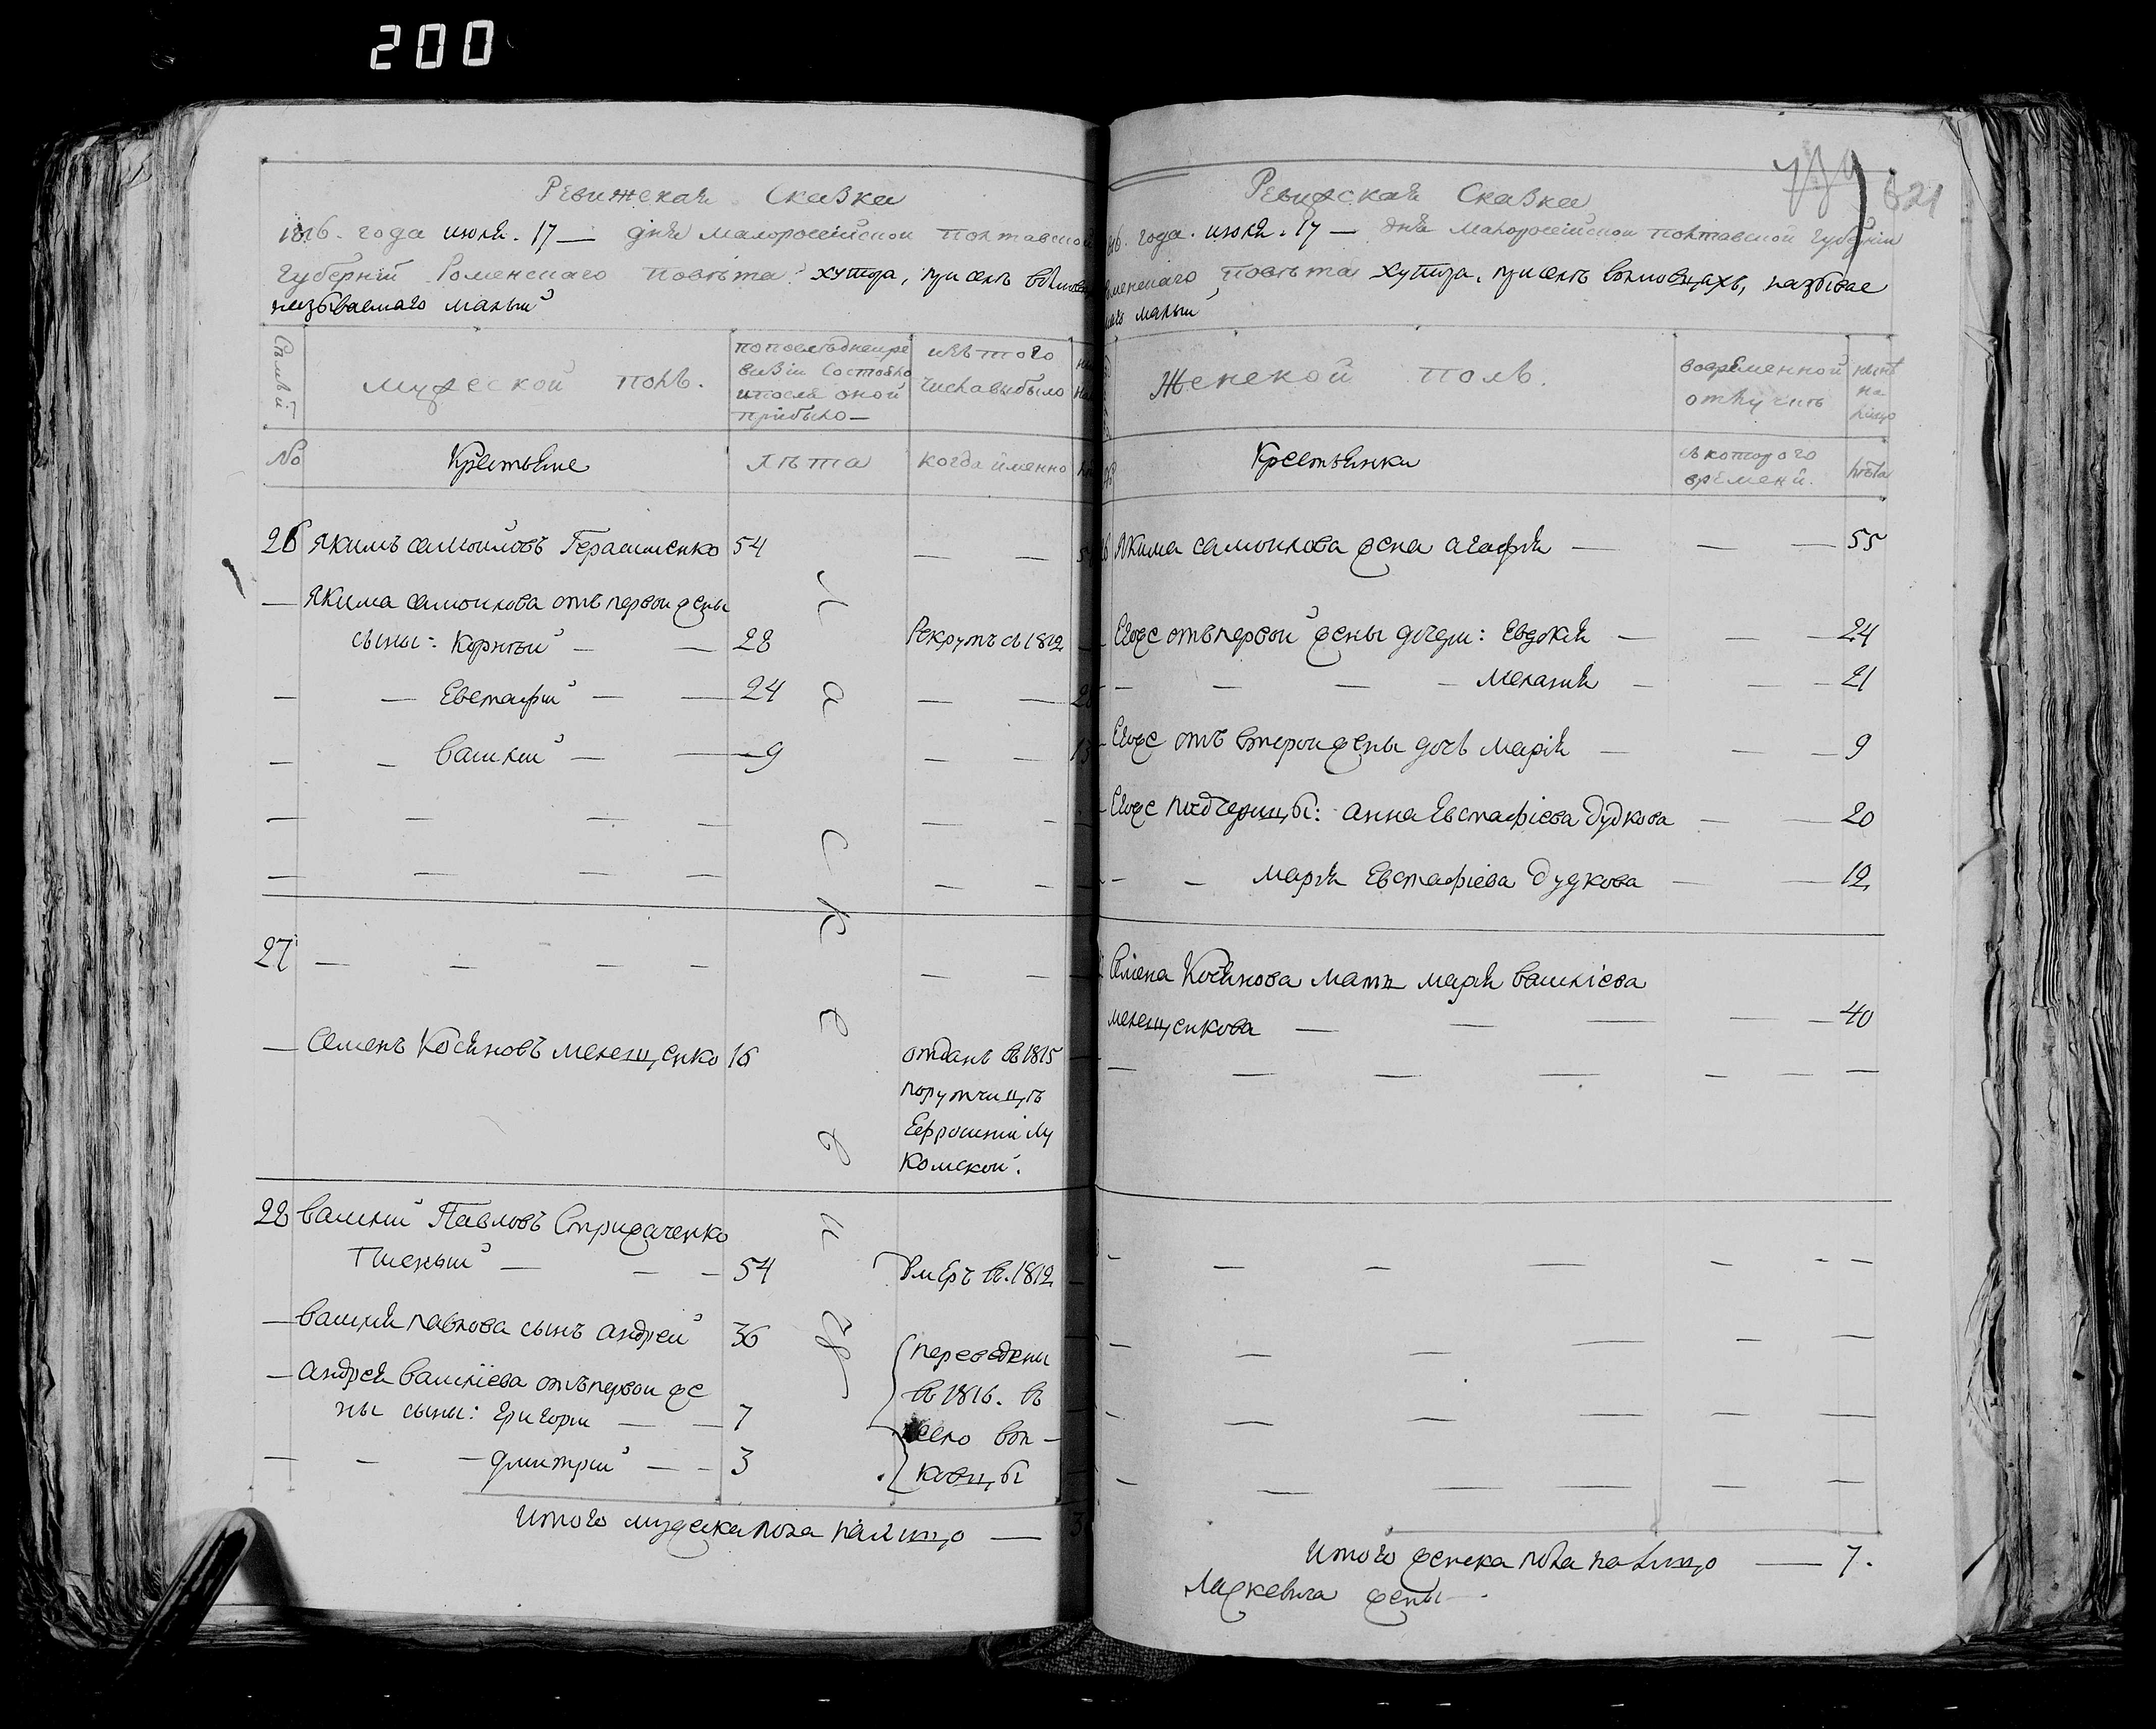 200
Ревижская Сказка
1816. года июля. 17 — дня малороссійской полтавской
губерній Роменскаго повѣта: хутора, при селѣ
называемаго малый
мужеской полъ.
попоследнейре
визіи состояло
ипосля оной
прибыло —
изъ того
числавыбыло
№
Крестьяне
лѣта
когда именно
26 Якимъ самойловъ Герашченко 54 — —
— Якима самойлова отъ первой жены
сыны: Корнѣй — — 28 Рекрутъ съ 1812
— — Евстафий — — 24 — —
— — василий — — 9 — —
27 — — — — — —
— Семенъ Косиновъ мелещенко 16 отданъ въ 1815
порутчицѣ
Ефросиніи Лу
комской.
28 василий Павловъ Стридаченко
54 Умеръ въ. 1812
— василия павлова сынъ андрей 36 переведены
— Андрея василіева отъ первой же въ 1816. въ
ны сыны: григорий — — 7 село вол-
— — — дмитрий — — 3 ковцы
Итого мужеска пола налицо —
Лѣта
621
Ревижская Сказка
года. июля. 17 — дня малороссійской полтавской губерніи
повѣта хутора, при селѣ волковцахъ, называе
малый
Женской полъ.
вовременной
отлучкѣ
нынѣ
на
лицо
Крестьянки
съ которого
времени.
лѣта
Якима самойлова жена агафия — — — 55
Егоже отъ первой жены дочери: Евдокия — — — 24
— — — — мелания — — — 21
Егоже отъ второй жены дочь мария — — — 9
Егоже падчерицы: анна Евстафіева дудкова — — 20
— — мария Евстафіева дудкова — — 12
Семена Косинова мать мария василіева
мелещенкова — — — — — 40
Итого женска пола налицо — 7.
жены